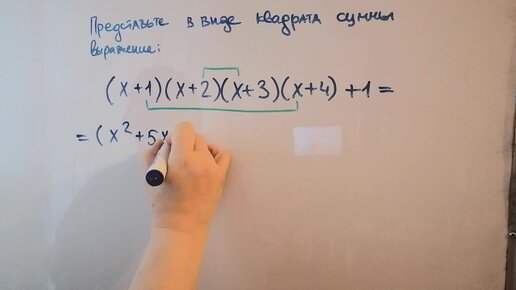 Представьте в виде квадрата суммы
выражение:
(x+1)(x+2)(x+3)(x+4)+1=
=(x²+5x